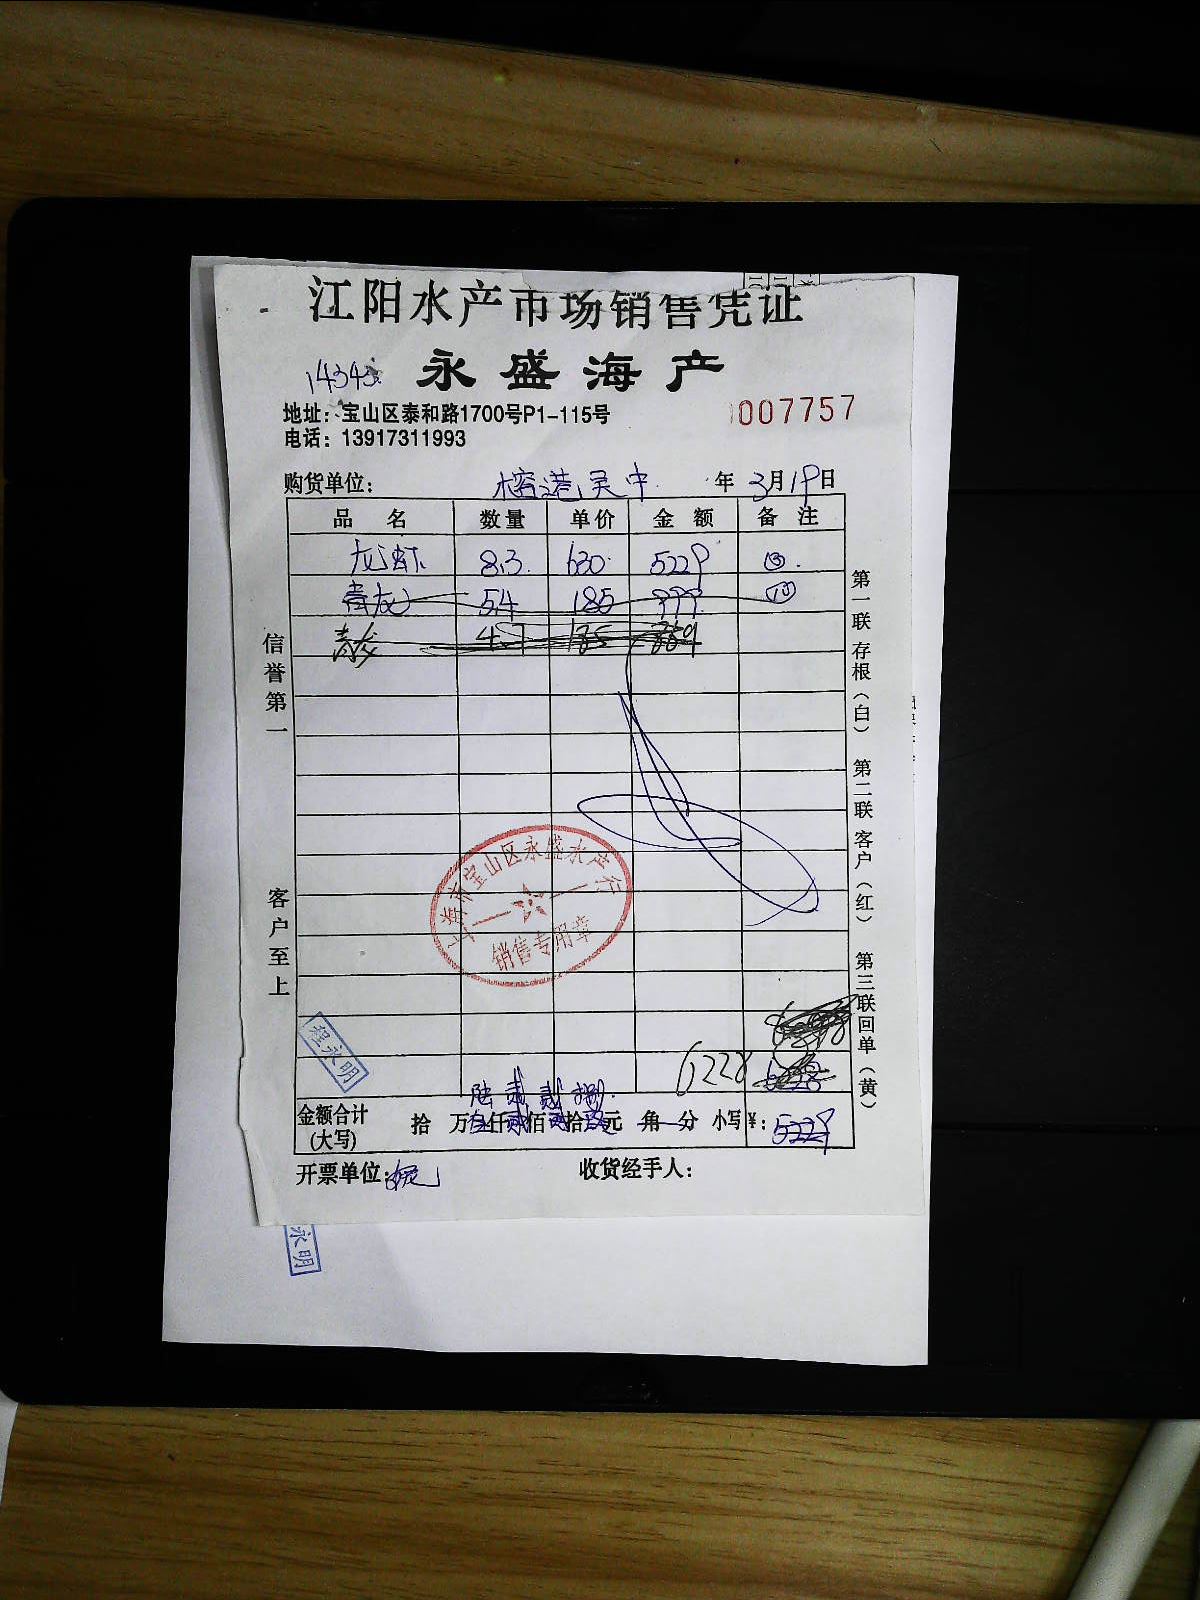 江阳水产市场销售凭证
14343
永盛海产
地址：宝山区泰和路1700号P1-115号
1007757
电话：13917311993
购货单位： 榕港吴中 年 3月19日
品名 数量 单价 金额 备注
龙虾 8.3 630 5229 ⑬
青龙 5.4 185 999
青龙 4.7 185 869
信誉第一
客户至上
第一联 存根（白） 第二联 客户（红） 第三联 回单（黄）
上海市宝山区永盛水产行
销售专用章
程永明
6228
陆贰贰捌
金额合计（大写） 拾 万 仟 佰 拾 元 角 分 小写¥： 5229
开票单位： 收货经手人：
永明